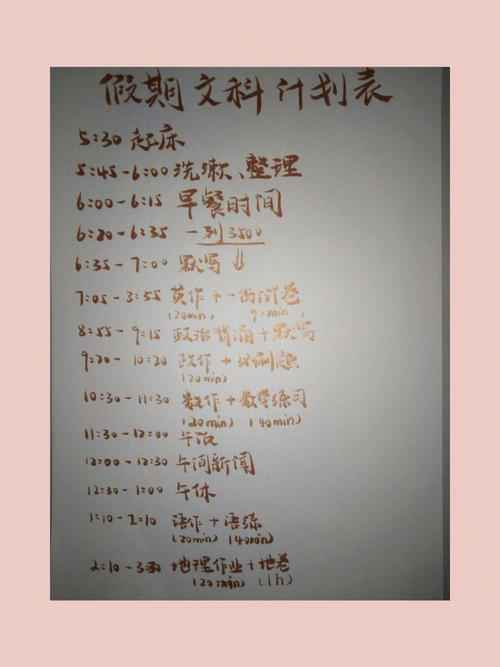 假期文科计划表
5:30 起床
5:45-6:00 洗漱、整理
6:00-6:15 早餐时间
6:20-6:35 一列3500
6:35-7:00 默写⇓
7:05-3:55 英作+一份问卷
(20min) (90min)
8:55-9:15 政治背诵+默写
9:20-10:20 政作+必刷题
(20min)
10:30-11:30 数作+数学练习
(20min) (40min)
11:30-12:00 午饭
12:00-12:30 午间新闻
12:30-1:00 午休
1:10-2:10 语作+语练
(20min) (40min)
2:10-3: 地理作业+地卷
(20min) (1h)